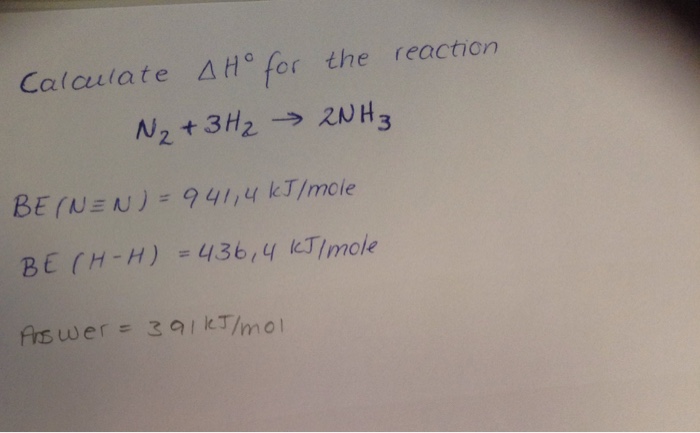 Calculate ΔH° for the reaction
N₂ + 3H₂ → 2NH₃
BE (N≡N) = 941,4 kJ/mole
BE (H-H) = 436,4 kJ/mole
Answer = 391 kJ/mol